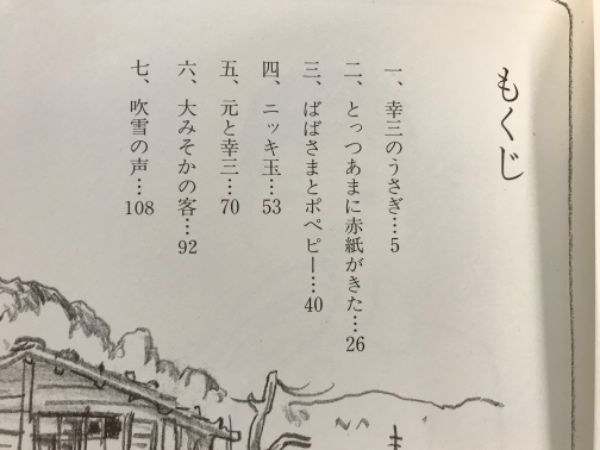 もくじ
一、幸三のうさぎ…5
二、とっつあまに赤紙がきた…26
三、ばばさまとポペピー…40
四、ニッキ玉…53
五、元と幸三…70
六、大みそかの客…92
七、吹雪の声…108